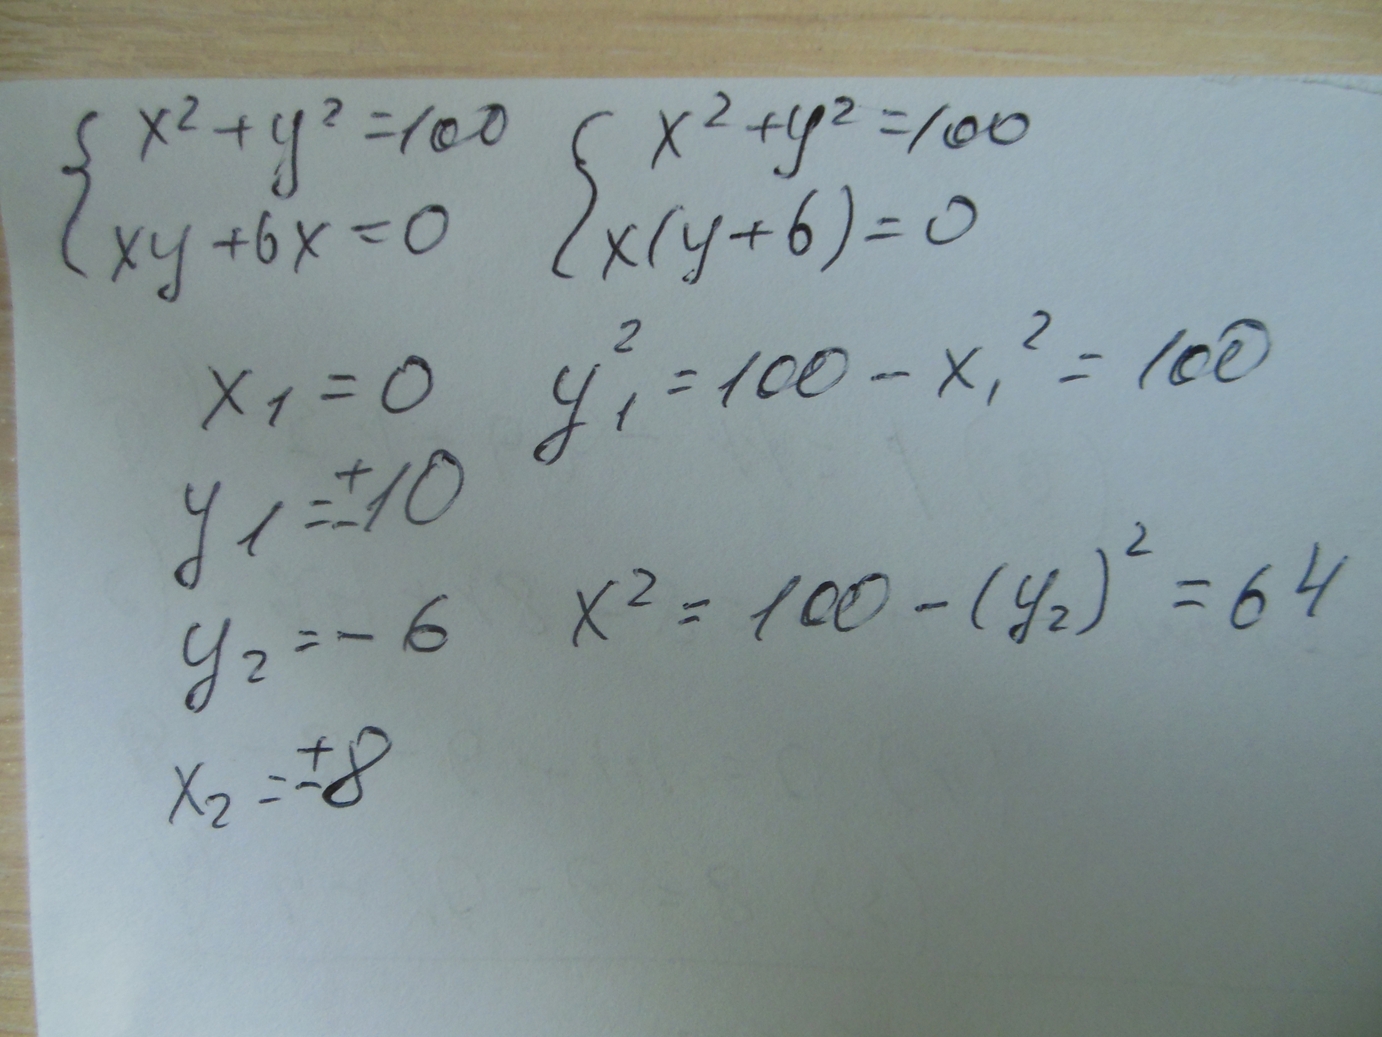 { x² + y² = 100 { x² + y² = 100
xy + 6x = 0 x(y + 6) = 0
x₁ = 0 y₁² = 100 - x₁² = 100
y₁ = ±10
y₂ = - 6 x² = 100 - (y₂)² = 64
x₂ = ±8